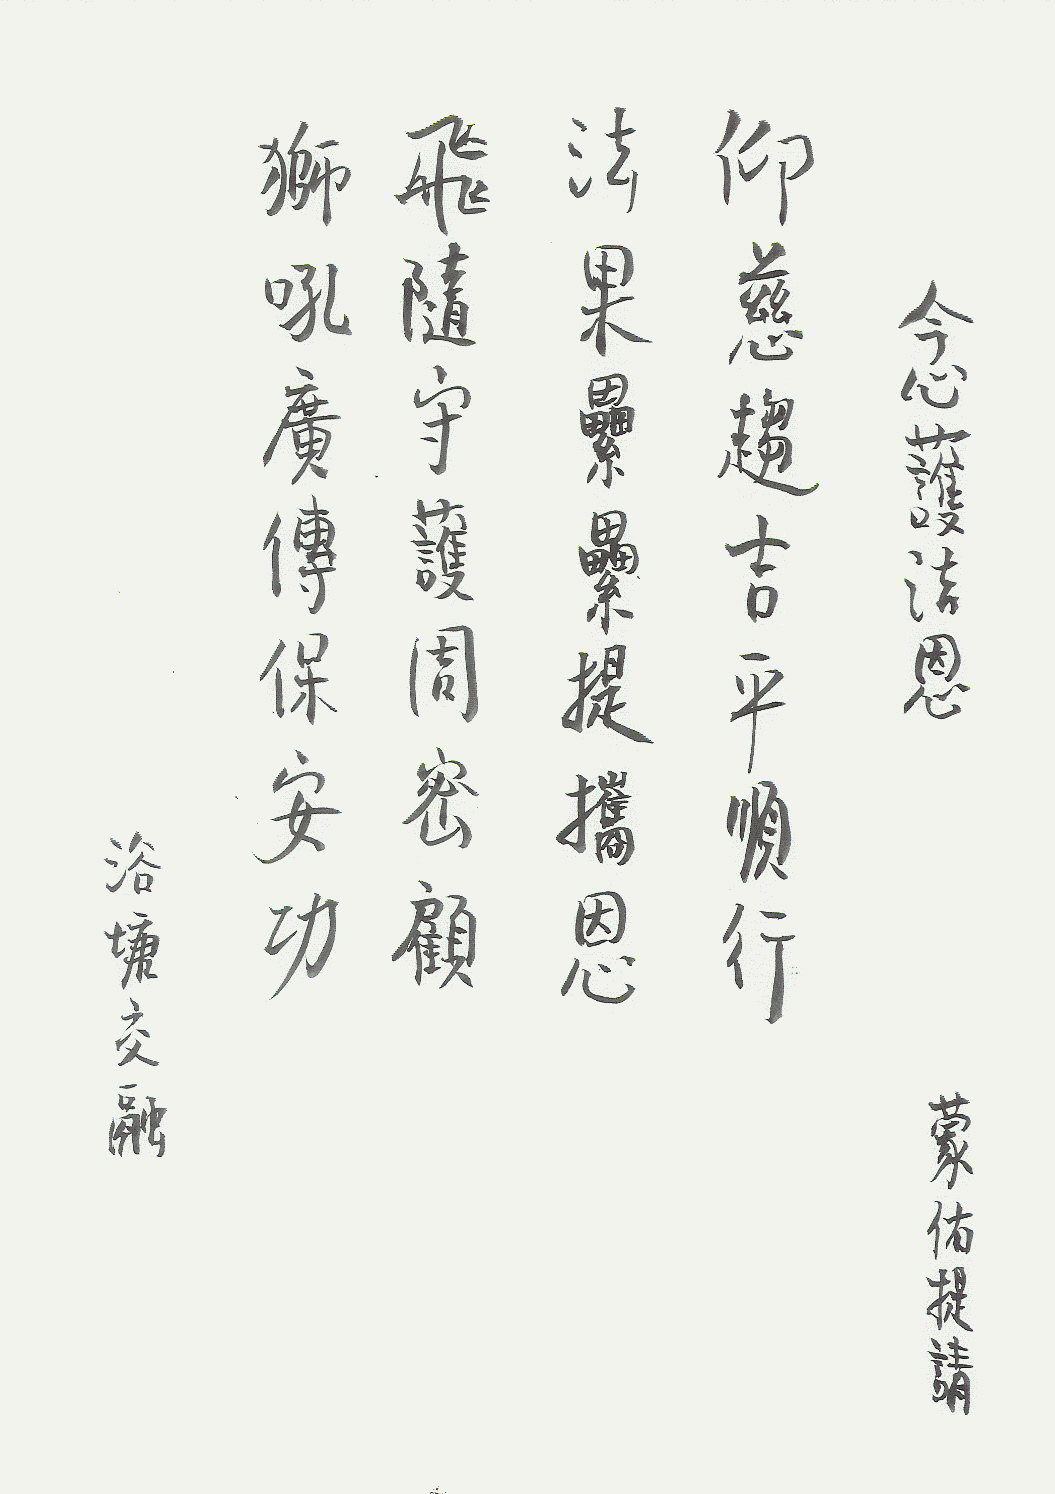 念護法恩
蒙佑提請
仰慈趨吉平順行
法果纍纍提攜恩
飛隨守護周密顧
獅吼廣傳保安功
浴塘交融